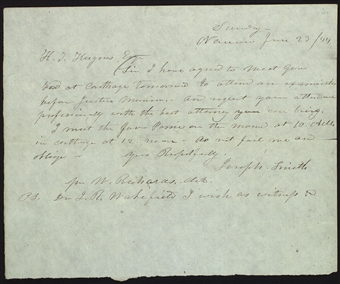 Sunday
Nauvoo June 23/44
H. T. Hugins Esq
Sir I have agreed to meet Gov
Ford at Carthage tomorrow to attend an examination
before Justice Morrison. And request your attendance
professionally with the best attorney you can bring.
I meet the Gov's Posse on the mound at 10 A.M.
in Carthage at 12 noon. do not fail me and
oblige yours Respectfully
Joseph Smith
per W. Richards, clk.
P.S. Dr J. R. Wakefield I wish as witness &c